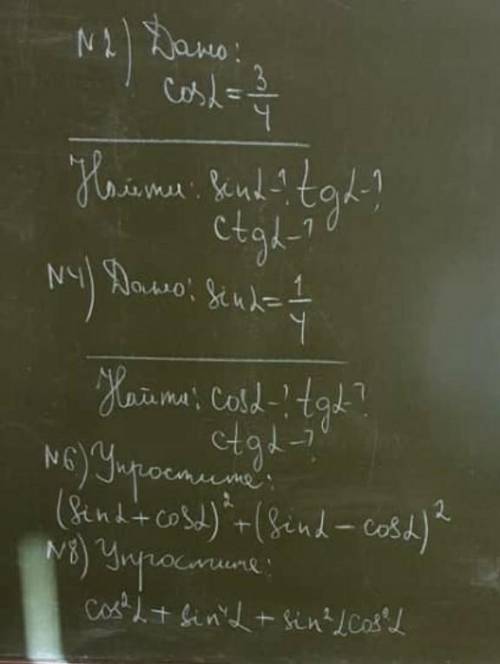 N2) Дано:
cosα = 3/4
Найти: sinα-? tgα-?
ctgα-?
N4) Дано: sinα = 1/4
Найти: cosα-? tgα-?
ctgα-?
N6) Упростите:
(sinα + cosα)² + (sinα - cosα)²
N8) Упростите:
cos²α + sin⁴α + sin²α cos²α